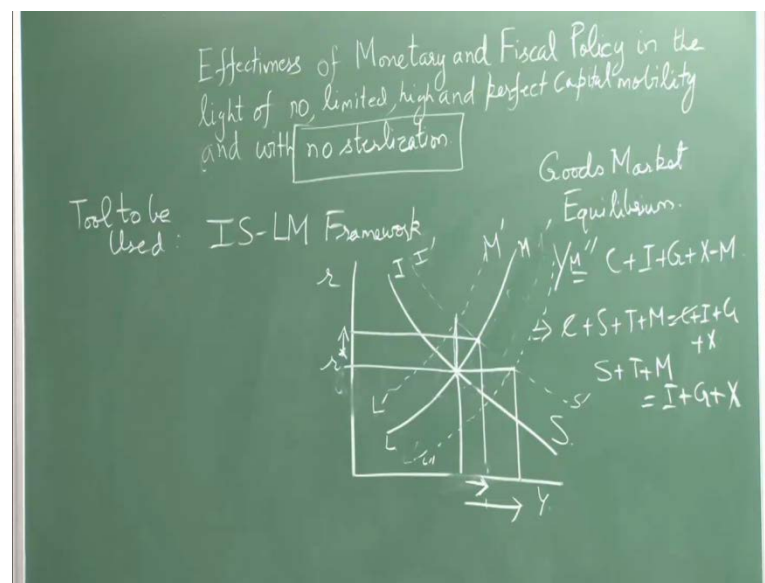 Effectiveness of Monetary and Fiscal Policy in the
light of no, limited, high and perfect capital mobility
and with no sterlization
Tool to be
Used : IS-LM Framework
Goods Market
Equilibrium.
Y = C+I+G+X-M
⇒ C+S+T+M=C+I+G
+X
S+T+M
= I+G+X
r
I I' M' M M''
r
L' L L''
S' S
Y